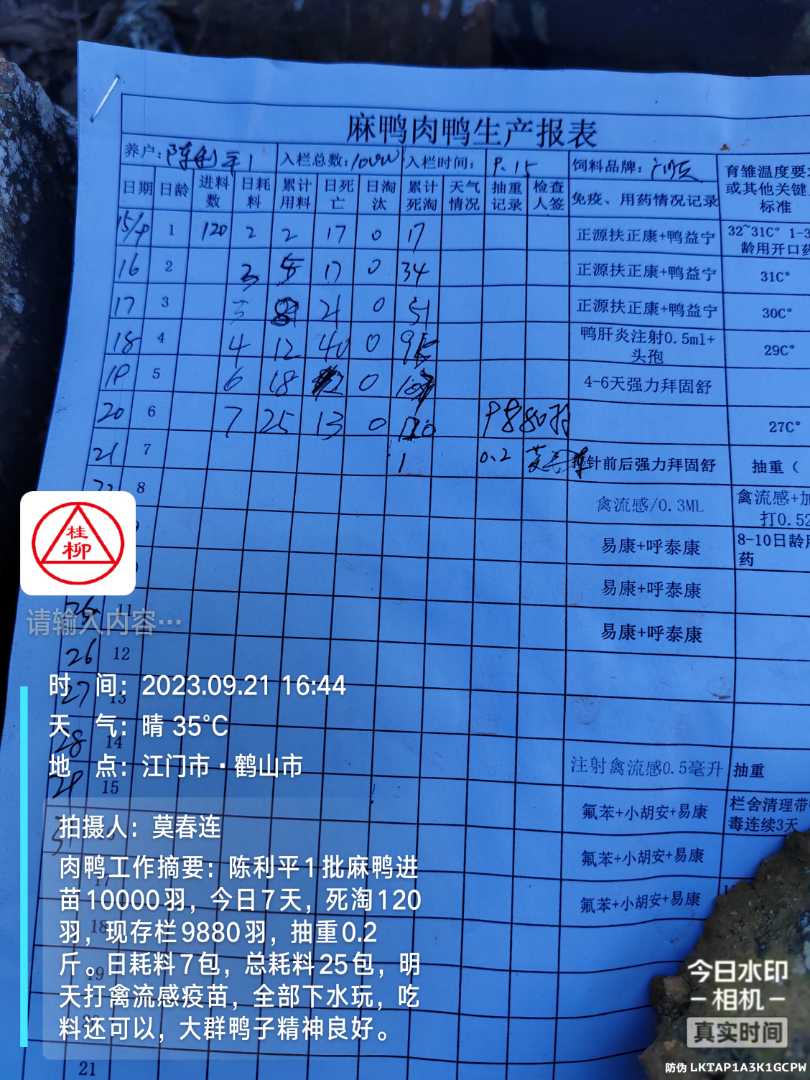 麻鸭肉鸭生产报表
养户: 陈利平1 入栏总数: 10000 入栏时间: 9.15 饲料品牌: 育雏温度要
或其他关键
标准
日期 日龄 进料数 日耗料 累计用料 日死亡 日淘汰 累计死淘 天气情况 抽重记录 检查人签 免疫、用药情况记录
15/9 1 120 2 2 17 0 17 正源扶正康+鸭益宁 32~31C° 1-3
龄用开口药
16 2 3 5 17 0 34 正源扶正康+鸭益宁 31C°
17 3 3 8 21 0 51 正源扶正康+鸭益宁 30C°
18 4 4 12 40 0 鸭肝炎注射0.5ml+
头孢 29C°
19 5 6 18 0 4-6天强力拜固舒
20 6 7 25 13 0 120 9880羽 27C°
21 7 0.2 针前后强力拜固舒 抽重（
8 禽流感/0.3ML 禽流感+加
打0.52
易康+呼泰康 8-10日龄用
药
易康+呼泰康
11 易康+呼泰康
26 12
27 13
28 14 注射禽流感0.5毫升 抽重
29 15 氟苯+小胡安+易康 栏舍清理带
毒连续3天
氟苯+小胡安+易康
17 氟苯+小胡安+易康
18
21
桂
柳
请输入内容…
时 间: 2023.09.21 16:44
天 气: 晴 35℃
地 点: 江门市·鹤山市
拍摄人: 莫春连
肉鸭工作摘要: 陈利平1批麻鸭进
苗10000羽，今日7天，死淘120
羽，现存栏9880羽，抽重0.2
斤。日耗料7包，总耗料25包，明
天打禽流感疫苗，全部下水玩，吃
料还可以，大群鸭子精神良好。
今日水印
-相机-
真实时间
防伪 LKTAP1A3K1GCPW